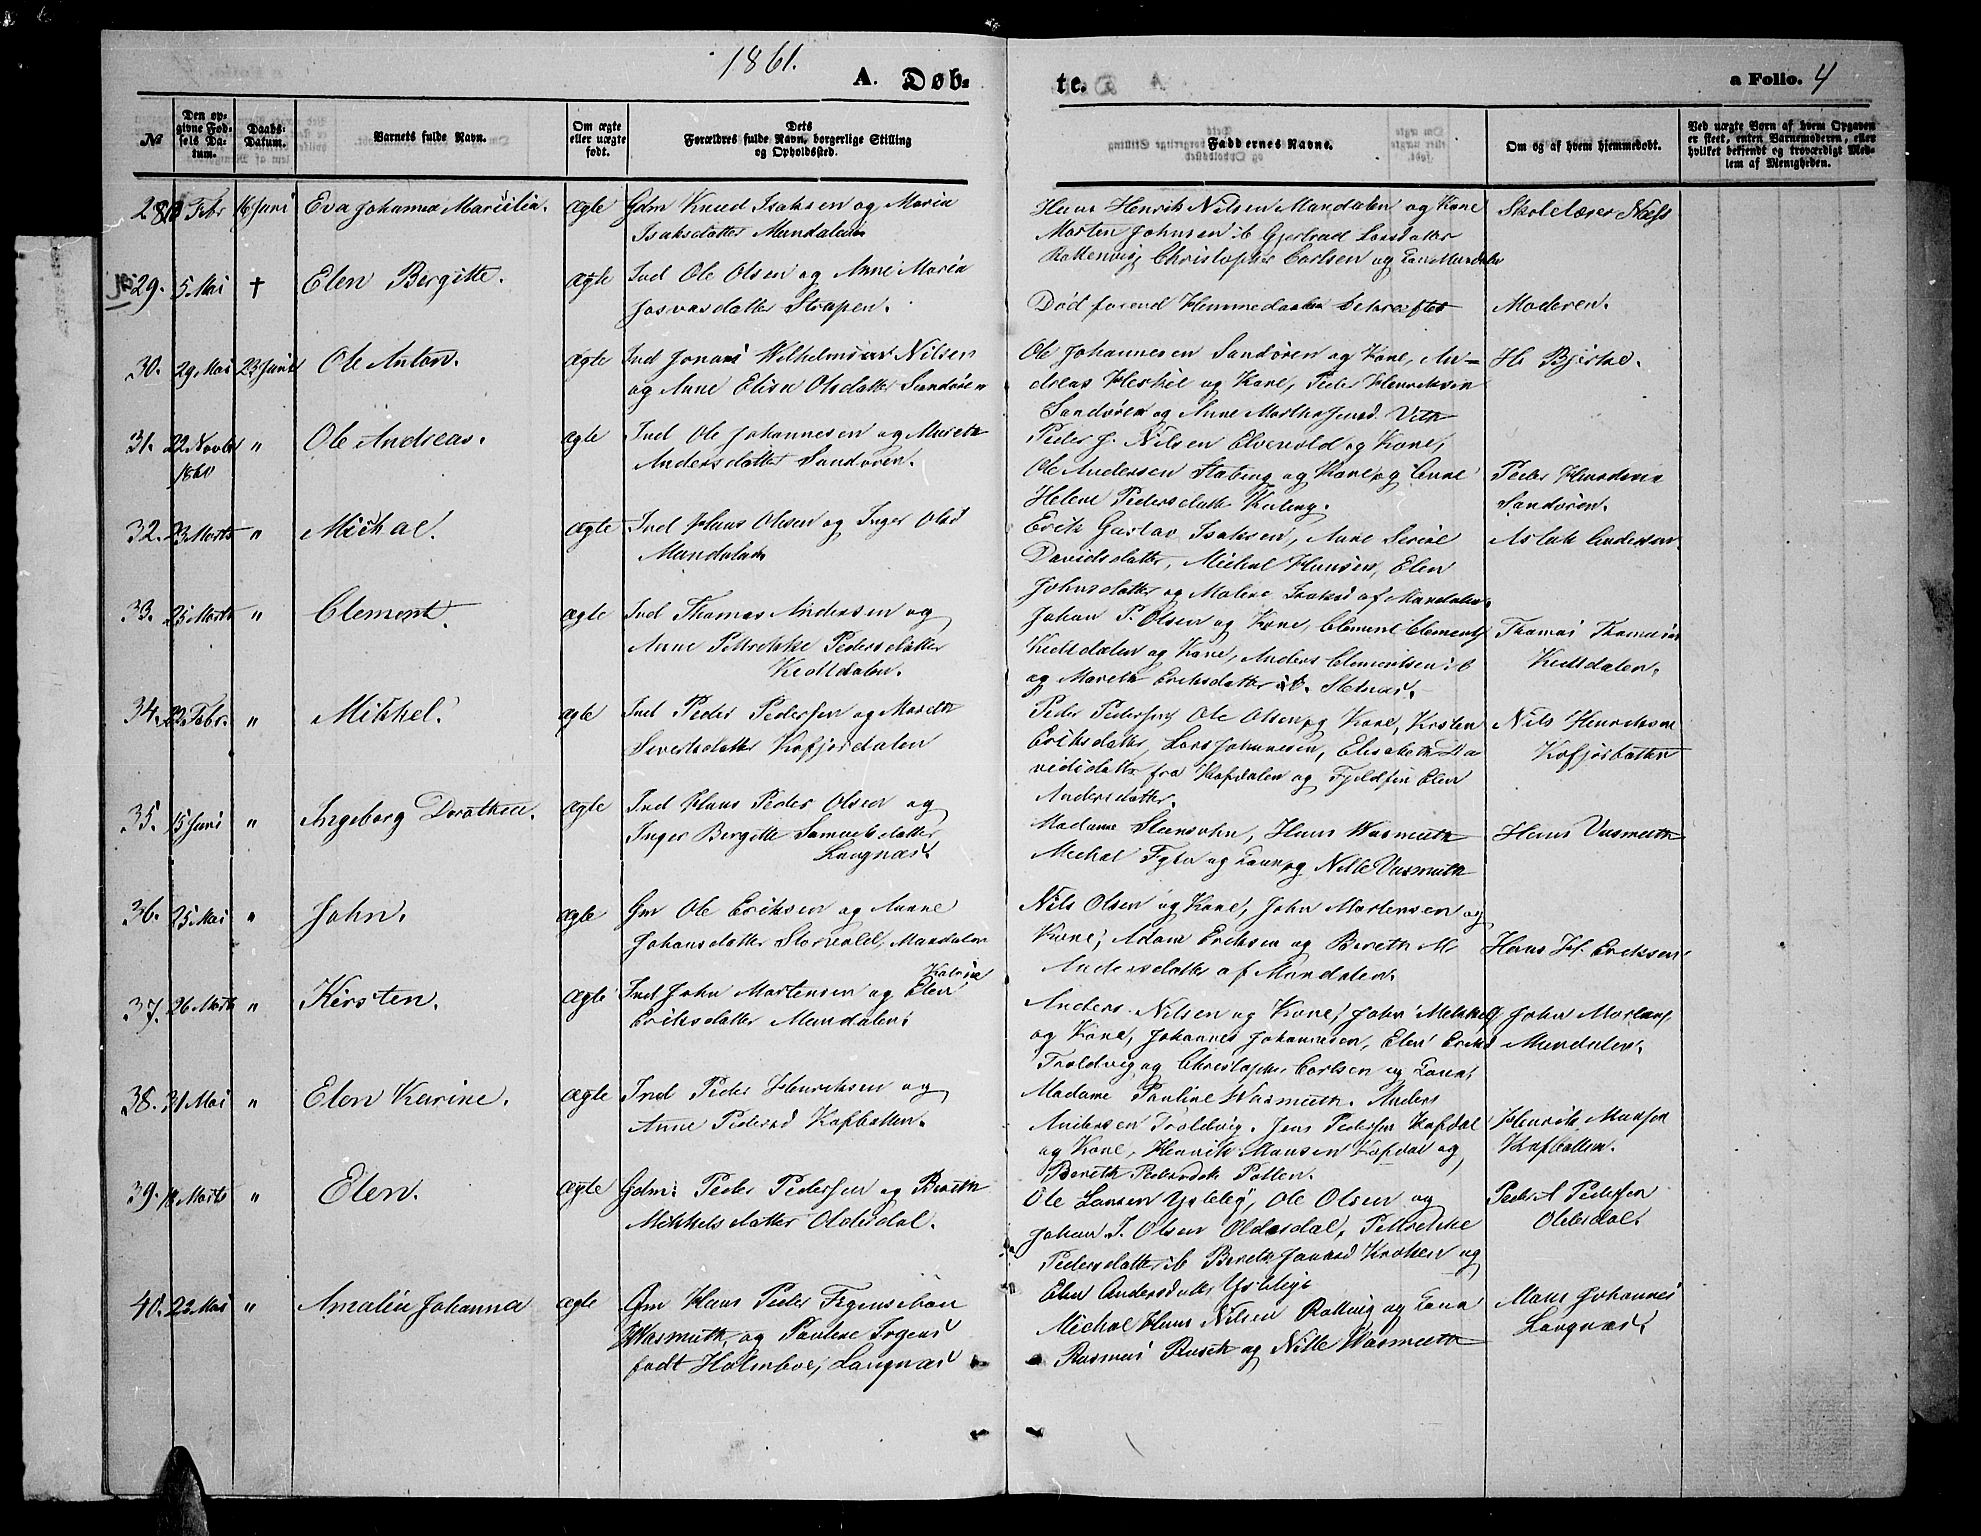 1861.
A. Døb-
te.
a Folio. 4
№
Den op-
givne Fød-
sels Da-
tum.
Daabs-
Datum.
Barnets fulde Navn.
Om ægte
eller uægte
født.
Dets
Forældres fulde Navn, borgerlige Stilling
og Opholdssted.
Faddernes Navne.
Om og af hvem hjemmedøbt.
Ved uægte Børn af hvem Opgaven
er skeet, enten Barnemoderen, eller
hvilket bekjendt og troværdigt Med-
lem af Menigheden.
28 Febr 16 Juni Eva Johanna Marcilia. ægte Gdm Knud Isaksen og Maria
Isaksdatter Mandalen
Hans Henrik Nilsen Mandalen og Kone
Morten Johnsen ib Gjertrud Larsdatter
Christopher Carlsen og
Skolelærer Næss
29. 5 Mai † Elen Bergitte. ægte Ind Ole Olsen og Anne Maria
Josvasdatter Skrapen.
Død forend Hjemmedaaben bekræftet
Moderen.
30. 29 Mai 23 Juni Ole Anton. ægte Ind Jonas Wilhelmsen Nilsen
og Anne Elisa Olsdatter Sandøren
Ole Johannesen Sandøren og Kone, An-
dreas Heskil og Kone, Peder Henriksen
Sandøren og Anne Martha Jensd. Veth
Hr Bjerke.
31. 22 Novbr " Ole Andreas. ægte Ind Ole Johannesen og Mareth
1860 Andersdatter Sandøren.
Peder J. Nilsen Elvevold og Kone,
Ole Andersen Stabing og Kone og Anne
Helene Pedersdatter
Peder
Sandøren.
32. 23 Marts " Michal. ægte Ind Hans Olsen og Inger Olsd
Mandalen
Erik Gustav Isaksen, Anne Serine
Davidsdatter, Michal Hansen, Elen
Johnsdatter og Malene Isaksd af Mandalen.
Aslak Andersen
33. 25 Marts " Clement. ægte Ind Thomas Andersen og
Anne Petrikke Pedersdatter
Kidtdalen.
Johan P. Olsen og Kone, Clement Clements
Kidtdalen og Kone, Anders Clementsen ib
og Mareth Eriksdatter
Thomas Thomasen
Kidtdalen.
34. 22 Febr. " Mikkel. ægte Ind Peder Pedersen og Mareth
Sivertsdatter Kofjordalen
Peder Pedersen, Ole Olsen og Kone, Kirsten
Eriksdatter, Lars Johannesen, Elisabeth Da-
vidsdatter fra Kafdalen og Fjeldfin Elen
Andersdatter.
Nils Henriksen
Kofjorbotten
35. 15 Juni " Ingeborg Dorothea. ægte Ind Hans Peder Olsen og
Inger Bergitte Samuelsdatter
Langnæs.
Madame Steensohn, Hans Wasmuth
Michal Fyhn og Kone og Nille Vasmuth
Hans Vasmuth
36. 25 Mai " John. ægte Gm Ole Eriksen og Anne
Johansdatter Storvold, Mandalen
Nils Olsen og Kone, John Mortensen og
Kone, Adam Eriksen og Bereth M.
Andersdatter af Mandalen.
Hans H. Eriksen
37. 26 Marts " Kirsten. ægte Ind John Mortensen og Elen Katrine
Eriksdatter Mandalen.
Anders Nilsen og Kone, John Mikkels
og Kone, Johannes Johannesen, Elen Eriksd
Troldvig og Christopher Carlsen og Kone
John
Mandalen.
38. 31 Mai " Elen Karine. ægte Ind Peder Henriksen og
Anne Pedersd Kafbotten.
Madame Pauline Wasmuth. Anders
Andersen Troldvig. Jens Pedersen Kafdal
og Kone, Henrik Monsen Kafdal og
Bereth Pedersdatter Pollen.
Henrik Monsen
Kafbotten.
39. 18 Marts " Elen. ægte Gdm. Peder Pedersen og Bereth
Mikkelsdatter Oldesdal.
Ole Larsen Ysteby, Ole Olsen og
Johan J. Olsen Oldesdal, Petrikke
Pedersdatter ib Bereth Jonasd Kroken og
Elen Andersdatter
Peder A Pedersen
Oldesdal.
40. 22 Mai " Amalia Johanna ægte Gm Hans Peder
Wasmuth, og Pauline Irgens
født Holmboe, Langnæs
Michal Hans Nilsen og Kona
Rasmus Rasch og Nille Wasmuth
Mons Johannes
Langnæs.